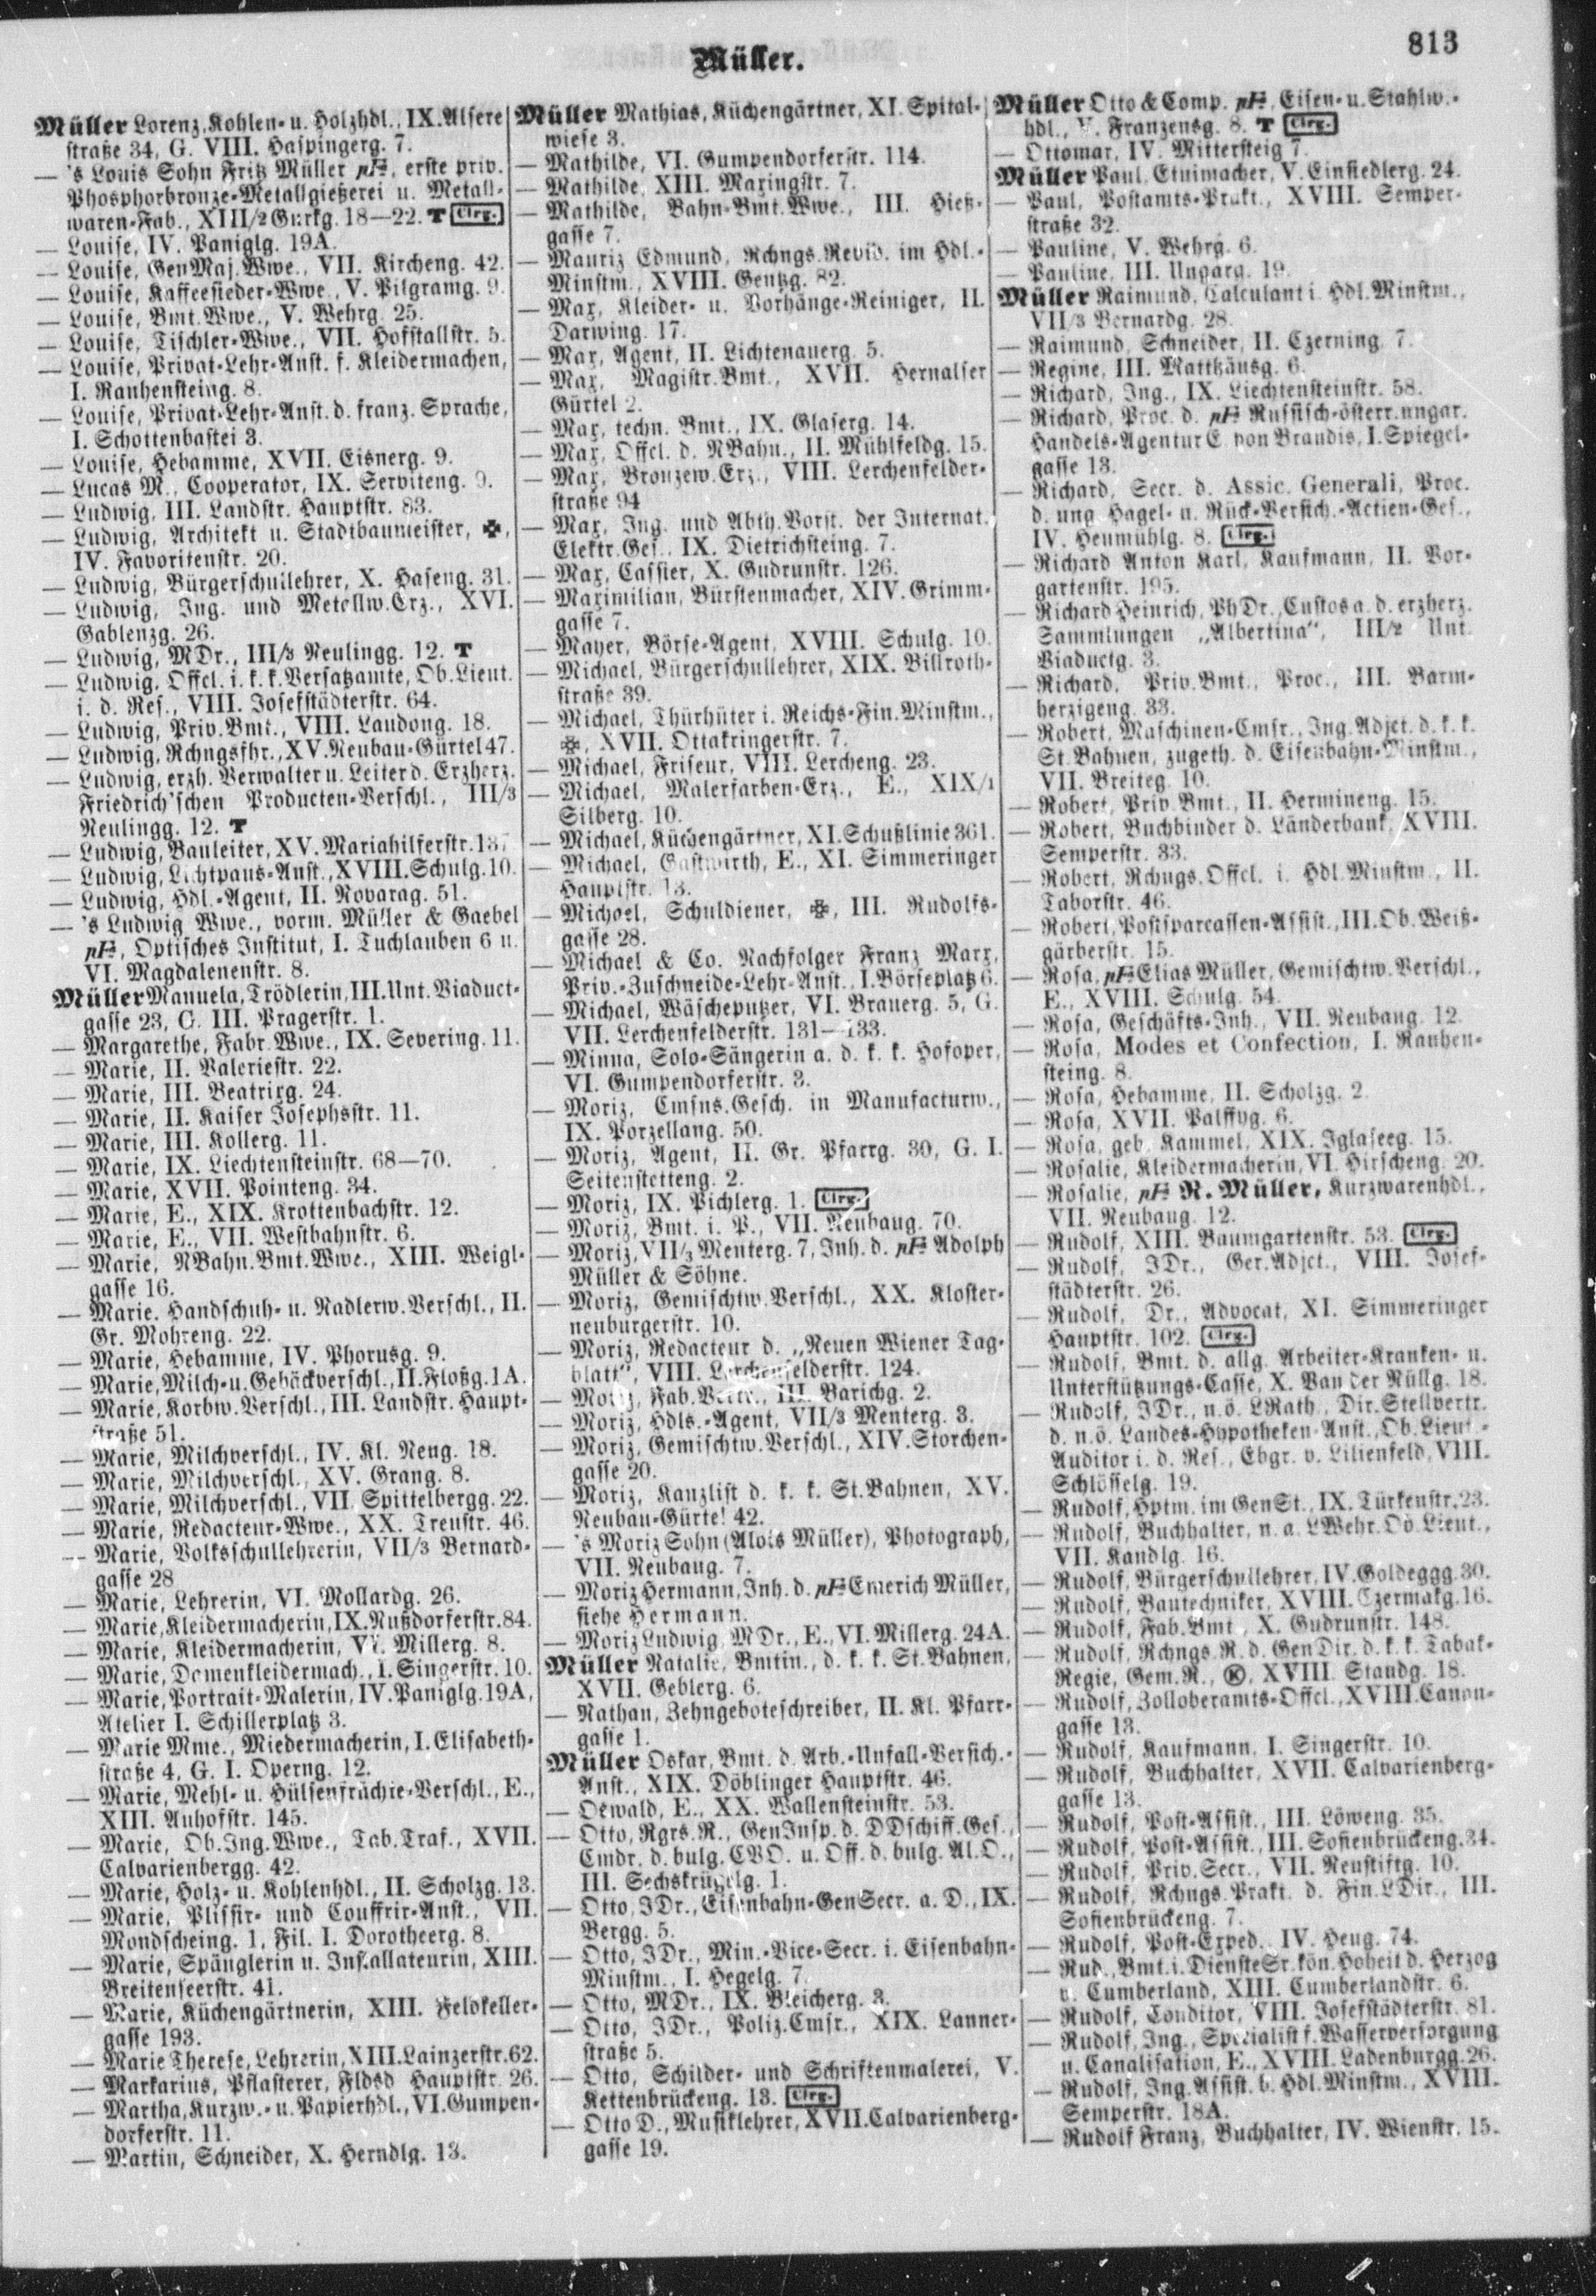 813
Müller.
Müller Lorenz, Kohlen- u. Holzhdl., IX. Alser
straße 34, G. VIII. Haspingerg. 7.
— 's Louis Sohn Fritz Müller pFa, erste priv.
Phosphorbronze-Metallgießerei u. Metall-
waren-Fab., XIII/2 Gurkg. 18—22. T Clrg.
— Louise, IV. Paniglg. 19A.
— Louise, GenMaj.Wwe., VII. Kircheng. 42.
— Louise, Kaffeesieder-Wwe., V. Pilgramg. 9.
— Louise, Bmt.Wwe., V. Wehrg. 25.
— Louise, Tischler-Wwe., VII. Hofstallstr. 5.
— Louise, Privat-Lehr-Anst. f. Kleidermachen,
I. Rauhensteing. 8.
— Louise, Privat-Lehr-Anst. d. franz. Sprache,
I. Schottenbastei 3.
— Louise, Hebamme, XVII. Eisnerg. 9.
— Lucas M., Cooperator, IX. Serviteng. 9.
— Ludwig, III. Landstr. Hauptstr. 83.
— Ludwig, Architekt u. Stadtbaumeister, ✠,
IV. Favoritenstr. 20.
— Ludwig, Bürgerschullehrer, X. Haseng. 31.
— Ludwig, Ing. und Metallw.Erz., XVI.
Gablenzg. 26.
— Ludwig, MDr., III/3 Neulingg. 12. T
— Ludwig, Offcl. i. k. k. Versatzamte, Ob.Lieut.
i. d. Res., VIII. Josefstädterstr. 64.
— Ludwig, Priv.Bmt., VIII. Laudong. 18.
— Ludwig, Rchngsfhr., XV. Neubau-Gürtel 47.
— Ludwig, erzh. Verwalter u. Leiter d. Erzherz.
Friedrich'schen Producten-Verschl., III/3
Neulingg. 12. T
— Ludwig, Bauleiter, XV. Mariahilferstr. 137
— Ludwig, Lichtpaus-Anst., XVIII. Schulg. 10.
— Ludwig, Hdl.-Agent, II. Novarag. 51.
— 's Ludwig Wwe., vorm. Müller & Gaebel
pFa, Optisches Institut, I. Tuchlauben 6 u.
VI. Magdalenenstr. 8.
Müller Manuela, Trödlerin, III. Unt. Viaduct-
gasse 23, G. III. Pragerstr. 1.
— Margarethe, Fabr.Wwe., IX. Severing. 11.
— Marie, II. Valeriestr. 22.
— Marie, III. Beatrixg. 24.
— Marie, II. Kaiser Josephsstr. 11.
— Marie, III. Kollerg. 11.
— Marie, IX. Liechtensteinstr. 68—70.
— Marie, XVII. Pointeng. 34.
— Marie, E., XIX. Krottenbachstr. 12.
— Marie, E., VII. Westbahnstr. 6.
— Marie, NBahn.Bmt.Wwe., XIII. Weigl-
gasse 16.
— Marie, Handschuh- u. Nadlerw.Verschl., II.
Gr. Mohreng. 22.
— Marie, Hebamme, IV. Phorusg. 9.
— Marie, Milch- u. Gebäckverschl., II. Floßg. 1A.
— Marie, Korbw.Verschl., III. Landstr. Haupt-
straße 51.
— Marie, Milchverschl., IV. Kl. Neug. 18.
— Marie, Milchverschl., XV. Grang. 8.
— Marie, Milchverschl., VII. Spittelbergg. 22.
— Marie, Redacteur-Wwe., XX. Treustr. 46.
— Marie, Volksschullehrerin, VII/3 Bernard-
gasse 28
— Marie, Lehrerin, VI. Mollardg. 26.
— Marie, Kleidermacherin, IX. Nußdorferstr. 84.
— Marie, Kleidermacherin, VI. Millerg. 8.
— Marie, Damenkleidermach., I. Singerstr. 10.
— Marie, Portrait-Malerin, IV. Paniglg. 19A,
Atelier I. Schillerplatz 3.
— Marie Mme., Miedermacherin, I. Elisabeth-
straße 4, G. I. Operng. 12.
— Marie, Mehl- u. Hülsenfrüchte-Verschl., E.,
XIII. Auhofstr. 145.
— Marie, Ob.Ing.Wwe., Tab.Traf., XVII.
Calvarienbergg. 42.
— Marie, Holz- u. Kohlenhdl., II. Scholzg. 13.
— Marie, Plissir- und Couffrir-Anst., VII.
Mondscheing. 1, Fil. I. Dorotheerg. 8.
— Marie, Spänglerin u. Installateurin, XIII.
Breitenseerstr. 41.
— Marie, Küchengärtnerin, XIII. Feldkeller-
gasse 193.
— Marie Therese, Lehrerin, XIII. Lainzerstr. 62.
— Markarius, Pflasterer, Fldsd Hauptstr. 26.
— Martha, Kurzw.- u. Papierhdl., VI. Gumpen-
dorferstr. 11.
— Martin, Schneider, X. Herndlg. 13.
Müller Mathias, Küchengärtner, XI. Spital-
wiese 3.
— Mathilde, VI. Gumpendorferstr. 114.
— Mathilde, XIII. Maxingstr. 7.
— Mathilde, Bahn-Bmt.Wwe., III. Hieß-
gasse 7.
— Mauriz Edmund, Rchngs.Revid. im Hdl.-
Minstm., XVIII. Gentzg. 82.
— Max, Kleider- u. Vorhänge-Reiniger, II.
Darwing. 17.
— Max, Agent, II. Lichtenauerg. 5.
— Max, Magistr.Bmt., XVII. Hernalser
Gürtel 2.
— Max, techn. Bmt., IX. Glaserg. 14.
— Max, Offcl. d. NBahn., II. Mühlfeldg. 15.
— Max, Bronzew.Erz., VIII. Lerchenfelder-
straße 94
— Max, Ing. und Abth.Vorst. der Internat.
Elektr.Ges., IX. Dietrichsteing. 7.
— Max, Cassier, X. Gudrunstr. 126.
— Maximilian, Bürstenmacher, XIV. Grimm-
gasse 7.
— Mayer, Börse-Agent, XVIII. Schulg. 10.
— Michael, Bürgerschullehrer, XIX. Billroth-
straße 39.
— Michael, Thürhüter i. Reichs-Fin.Minstm.,
✠, XVII. Ottakringerstr. 7.
— Michael, Friseur, VIII. Lercheng. 23.
— Michael, Malerfarben-Erz., E., XIX/1
Silberg. 10.
— Michael, Küchengärtner, XI. Schußlinie 361.
— Michael, Gastwirth, E., XI. Simmeringer
Hauptstr. 13.
— Michael, Schuldiener, ✠, III. Rudolfs-
gasse 28.
— Michael & Co. Nachfolger Franz Marx,
Priv.-Zuschneide-Lehr-Anst., I. Börseplatz 6.
— Michael, Wäscheputzer, VI. Brauerg. 5, G.
VII. Lerchenfelderstr. 131—133.
— Minna, Solo-Sängerin a. d. k. k. Hofoper,
VI. Gumpendorferstr. 3.
— Moriz, Cmsns.Gesch. in Manufacturw.,
IX. Porzellang. 50.
— Moriz, Agent, II. Gr. Pfarrg. 30, G. I.
Seitenstetteng. 2.
— Moriz, IX. Pichlerg. 1. Clrg.
— Moriz, Bmt. i. P., VII. Neubaug. 70.
— Moriz, VII/3 Menterg. 7, Inh. d. pFa Adolph
Müller & Söhne.
— Moriz, Gemischtw.Verschl., XX. Kloster-
neuburgerstr. 10.
— Moriz, Redacteur d. „Neuen Wiener Tag-
blatt", VIII. Lerchenfelderstr. 124.
— Moriz, Fab.Vertr., III. Barichg. 2.
— Moriz, Hdls.-Agent, VII/3 Menterg. 3.
— Moriz, Gemischtw.Verschl., XIV. Storchen-
gasse 20.
— Moriz, Kanzlist d. k. k. St.Bahnen, XV.
Neubau-Gürtel 42.
— 's Moriz Sohn (Alois Müller), Photograph,
VII. Neubaug. 7.
— Moriz Hermann, Inh. d. pFa Emerich Müller,
siehe Hermann.
— Moriz Ludwig, MDr., E., VI. Millerg. 24A.
Müller Natalie, Bmtin., d. k. k. St.Bahnen,
XVII. Geblerg. 6.
— Nathan, Zehngeboteschreiber, II. Kl. Pfarr-
gasse 1.
Müller Oskar, Bmt. d. Arb.-Unfall-Versich.-
Anst., XIX. Döblinger Hauptstr. 46.
— Oswald, E., XX. Wallensteinstr. 53.
— Otto, Rgrs.R., GenInsp. d. DDschiff.Ges.,
Cmdr. d. bulg. CVO. u. Off. d. bulg. Al.O.,
III. Sechskrügelg. 1.
— Otto, JDr., Eisenbahn-GenSecr. a. D., IX.
Bergg. 5.
— Otto, JDr., Min.-Vice-Secr. i. Eisenbahn-
Minstm., I. Hegelg. 7.
— Otto, MDr., IX. Bleicherg. 3.
— Otto, JDr., Poliz.Cmsr., XIX. Lanner-
straße 5.
— Otto, Schilder- und Schriftenmalerei, V.
Kettenbrückeng. 13. Clrg.
— Otto D., Musiklehrer, XVII. Calvarienberg-
gasse 19.
Müller Otto & Comp. pFa, Eisen- u. Stahlw.-
hdl., V. Franzensg. 8. T Clrg.
— Ottomar, IV. Mittersteig 7.
Müller Paul, Etuimacher, V. Einsiedlerg. 24.
— Paul, Postamts-Prakt., XVIII. Semper-
straße 32.
— Pauline, V. Wehrg. 6.
— Pauline, III. Ungarg. 19.
Müller Raimund, Calculant i. Hdl.Minstm.,
VII/3 Bernardg. 28.
— Raimund, Schneider, II. Czerning. 7.
— Regine, III. Matthäusg. 6.
— Richard, Ing., IX. Liechtensteinstr. 58.
— Richard, Proc. d. pFa Russisch-österr.ungar.
Handels-Agentur E. von Brandis, I. Spiegel-
gasse 13.
— Richard, Secr. d. Assic. Generali, Proc.
d. ung Hagel- u. Rück-Versich.-Actien-Ges.,
IV. Heumühlg. 8. Clrg.
— Richard Anton Karl, Kaufmann, II. Vor-
gartenstr. 195.
— Richard Heinrich, PhDr., Custos a. d. erzherz.
Sammlungen „Albertina", III/2 Unt.
Viaductg. 3.
— Richard, Priv.Bmt., Proc., III. Barm-
herzigeng. 33.
— Robert, Maschinen-Cmsr., Ing.Adjct. d. k. k.
St.Bahnen, zugeth. d. Eisenbahn-Minstm.,
VII. Breiteg. 10.
— Robert, Priv.Bmt., II. Hermineng. 15.
— Robert, Buchbinder d. Länderbank, XVIII.
Semperstr. 33.
— Robert, Rchngs.Offcl. i. Hdl.Minstm., II.
Taborstr. 46.
— Robert, Postsparcassen-Assist., III. Ob. Weiß-
gärberstr. 15.
— Rosa, pFa Elias Müller, Gemischtw.Verschl.,
E., XVIII. Schulg. 54.
— Rosa, Geschäfts-Inh., VII. Neubaug. 12.
— Rosa, Modes et Confection, I. Rauhen-
steing. 8.
— Rosa, Hebamme, II. Scholzg. 2.
— Rosa, XVII. Palffyg. 6.
— Rosa, geb. Kammel, XIX. Iglaseeg. 15.
— Rosalie, Kleidermacherin, VI. Hirscheng. 20.
— Rosalie, pFa R. Müller, Kurzwarenhdl.,
VII. Neubaug. 12.
— Rudolf, XIII. Baumgartenstr. 53. Clrg.
— Rudolf, JDr., Ger.Adjct., VIII. Josef-
städterstr. 26.
— Rudolf, Dr., Advocat, XI. Simmeringer
Hauptstr. 102. Clrg.
— Rudolf, Bmt. d. allg. Arbeiter-Kranken- u.
Unterstützungs-Casse, X. Van der Nüllg. 18.
— Rudolf, JDr., n.ö. LRath., Dir.Stellvertr.
d. n.ö. Landes-Hypotheken-Anst., Ob.Lieut.-
Auditor i. d. Res., Ebgr. v. Lilienfeld, VIII.
Schlösselg. 19.
— Rudolf, Hptm. im GenSt., IX. Türkenstr. 23.
— Rudolf, Buchhalter, n. a. LWehr. Oö. Lieut.,
VII. Kandlg. 16.
— Rudolf, Bürgerschullehrer, IV. Goldeggg. 30.
— Rudolf, Bautechniker, XVIII. Czermakg. 16.
— Rudolf, Fab.Bmt., X. Gudrunstr. 148.
— Rudolf, Rchngs.R. d. GenDir. d. k. k. Tabak-
Regie, Gem.R., Ⓚ, XVIII. Staudg. 18.
— Rudolf, Zolloberamts-Offcl., XVIII. Canon-
gasse 13.
— Rudolf, Kaufmann, I. Singerstr. 10.
— Rudolf, Buchhalter, XVII. Calvarienberg-
gasse 13.
— Rudolf, Post-Assist., III. Löweng. 35.
— Rudolf, Post-Assist., III. Sofienbrückeng. 34.
— Rudolf, Priv.Secr., VII. Neustiftg. 10.
— Rudolf, Rchngs.Prakt. d. Fin.LDir., III.
Sofienbrückeng. 7.
— Rudolf, Post-Exped., IV. Heug. 74.
— Rud., Bmt. i. Dienste Sr. kön. Hoheit d. Herzog
v. Cumberland, XIII. Cumberlandstr. 6.
— Rudolf, Conditor, VIII. Josefstädterstr. 81.
— Rudolf, Ing., Specialist f. Wasserversorgung
u. Canalisation, E., XVIII. Ladenburgg. 26.
— Rudolf, Ing.Assist. b. Hdl.Minstm., XVIII.
Semperstr. 18A.
— Rudolf Franz, Buchhalter, IV. Wienstr. 15.